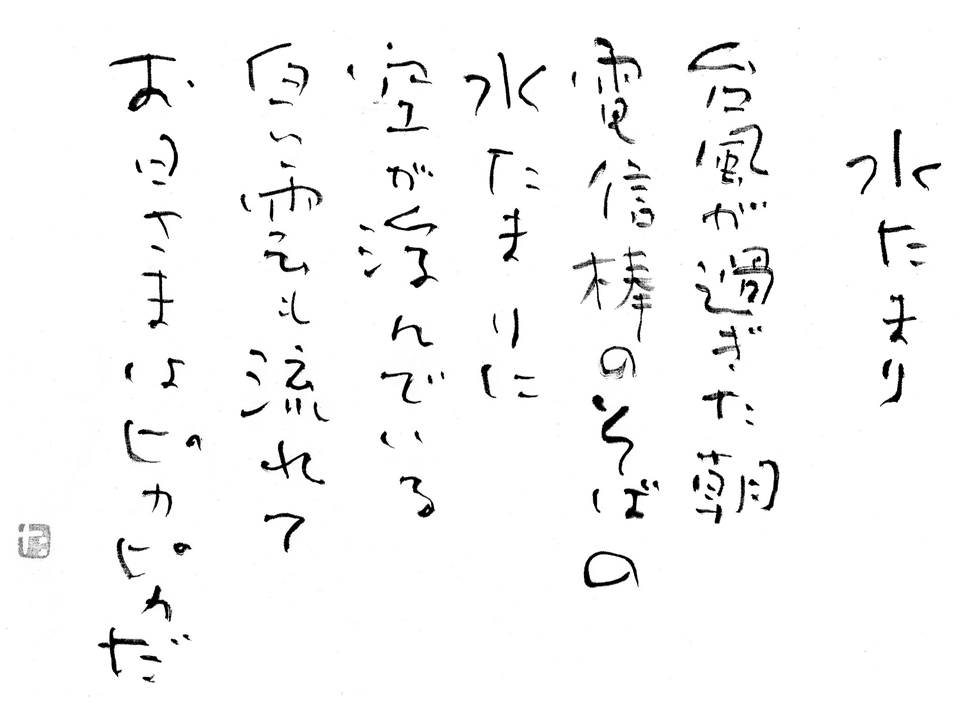 水たまり
台風が過ぎた朝
電信棒のそばの
水たまりに
空が浮んでいる
白い雲も流れて
お日さまはピカピカだ